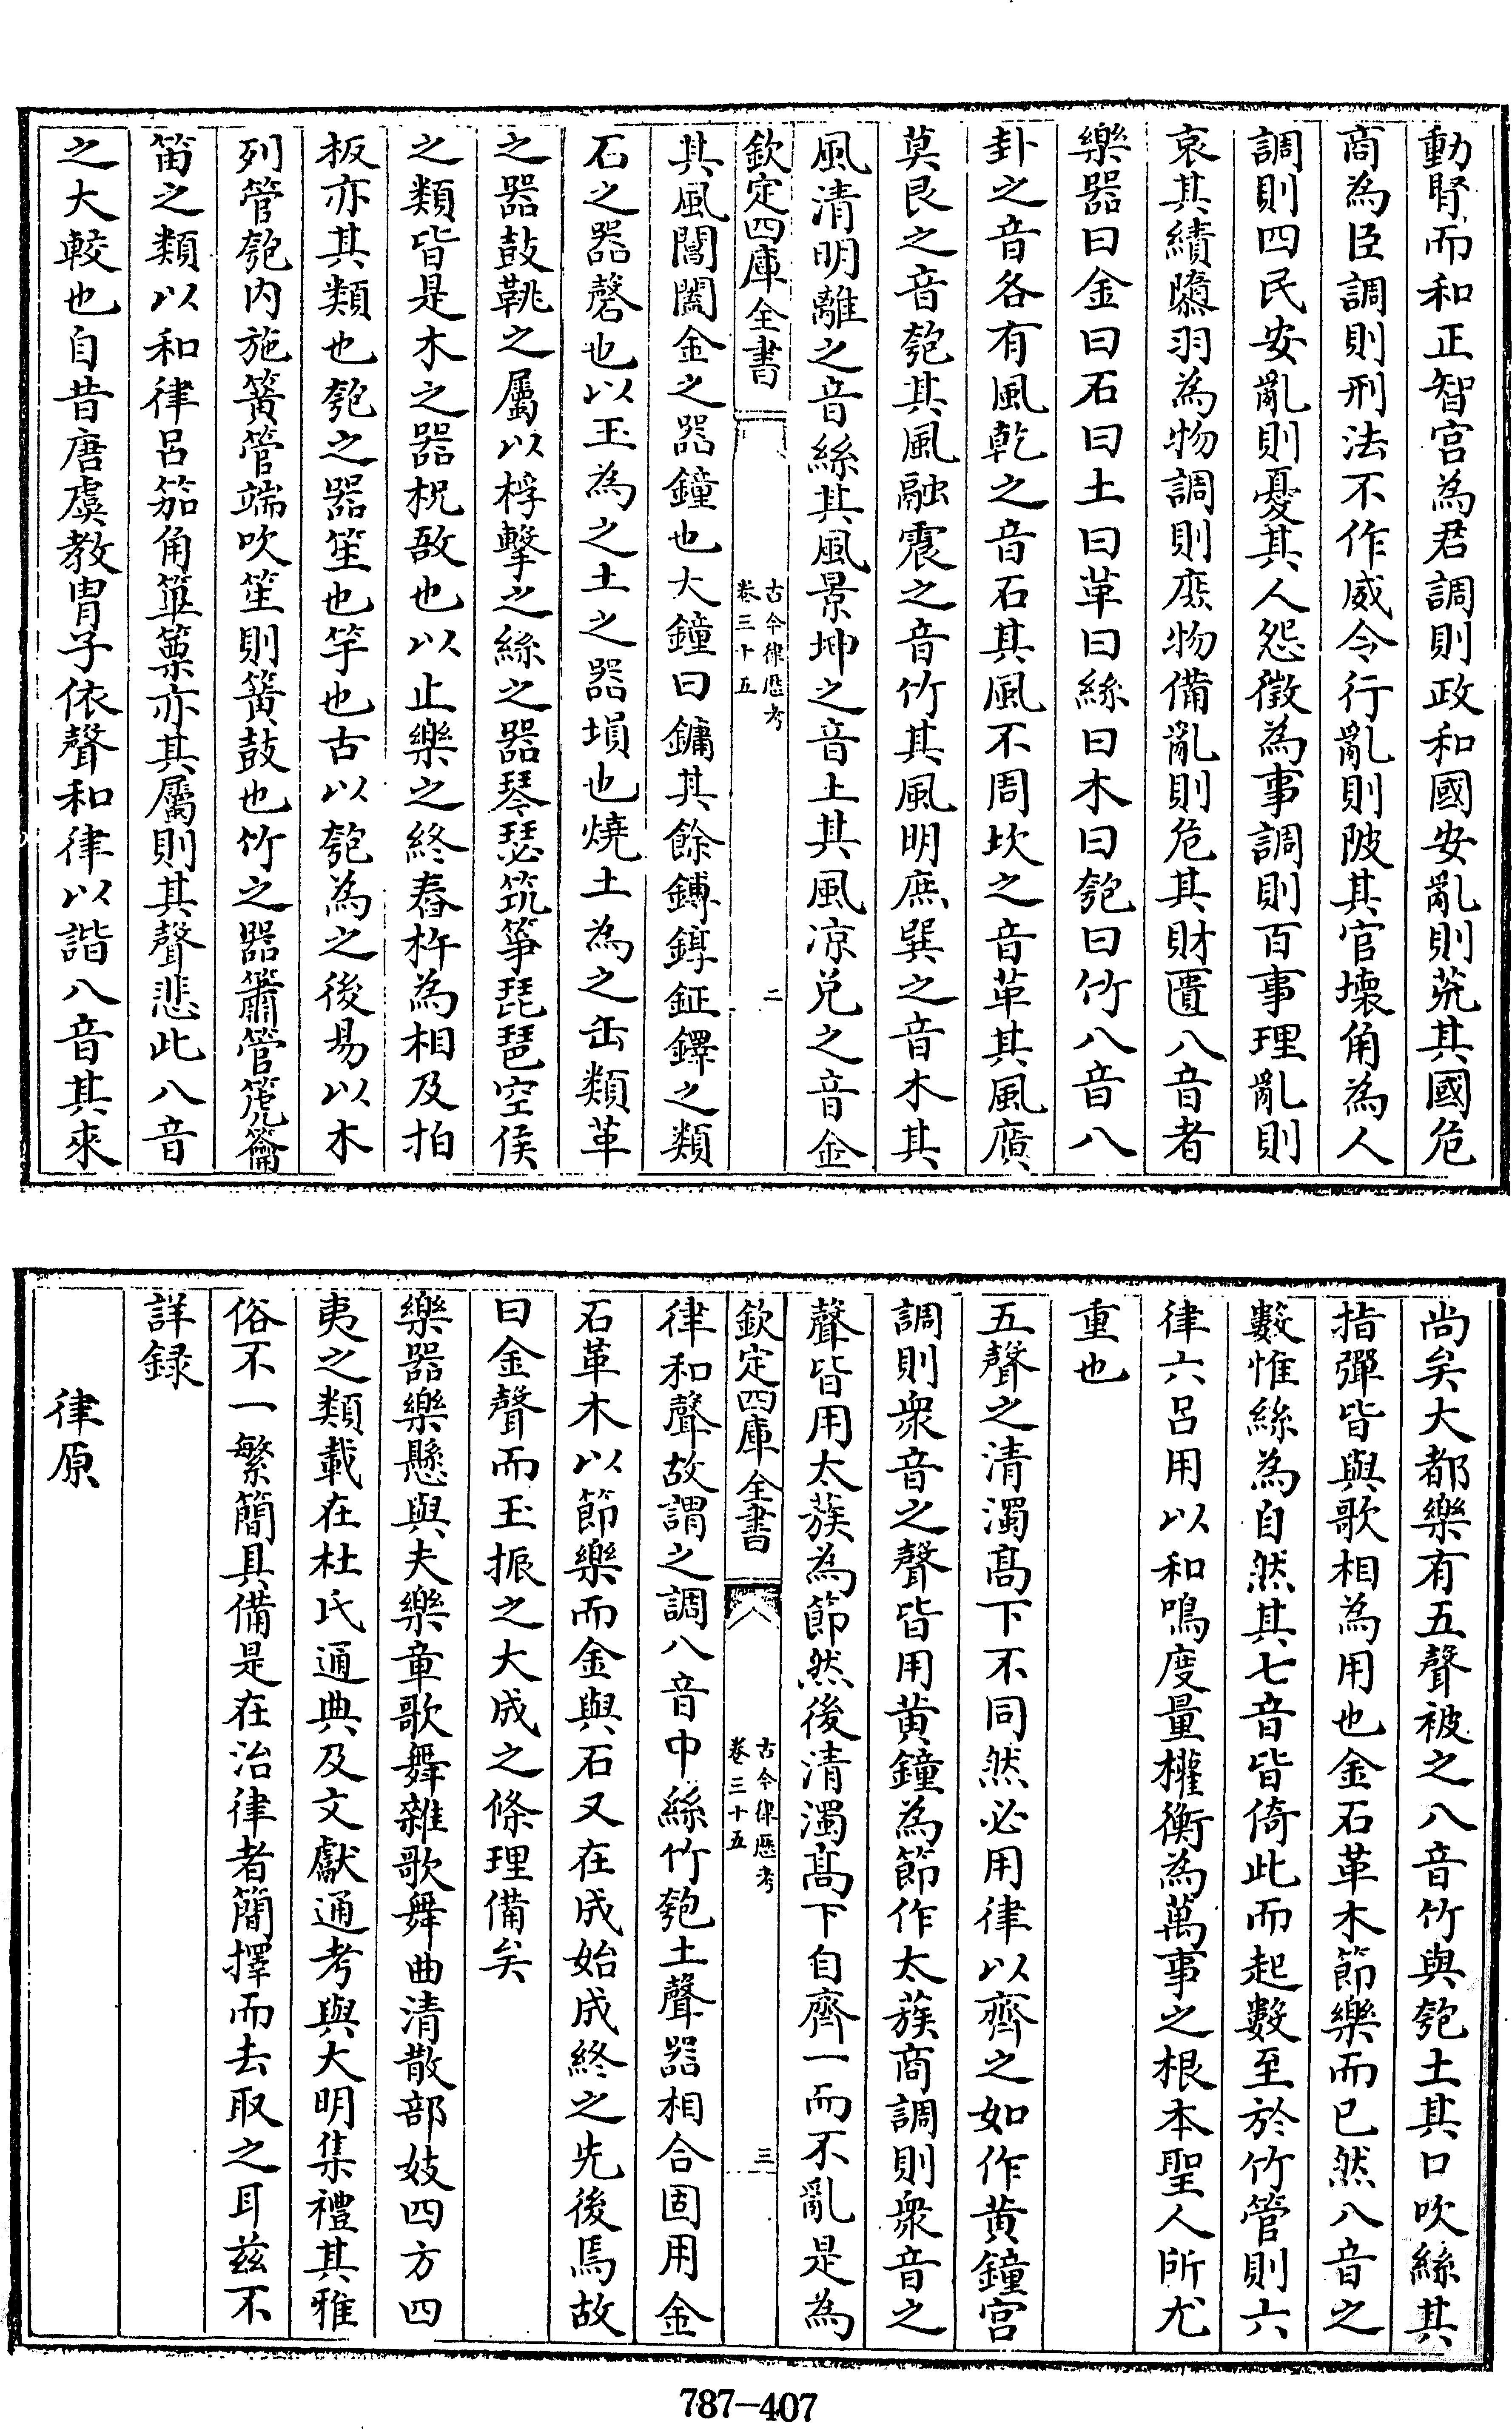 動腎而和正智宫為君調則政和國安亂則荒其國危
商為臣調則刑法不作威令行亂則陂其官壊角為人
調則四民安亂則憂其人怨徵為事調則百事理亂則
哀其績隳羽為物調則庶物備亂則危其財匱八音者
樂器曰金曰石曰土曰革曰絲曰木曰匏曰竹八音八
卦之音各有風乾之音石其風不周坎之音革其風廣
莫艮之音匏其風融震之音竹其風明庶巽之音木其
風清明離之音絲其風景坤之音土其風凉兑之音金
欽定四庫全書
古今律厯考
卷三十五
二
其風閶闔金之器鐘也大鐘曰鏞其餘鎛錞鉦鐸之類
石之器磬也以玉為之土之器塤也燒土為之缶類革
之器鼓鞉之屬以桴擊之絲之器琴瑟筑筝琵琶空侯
之類皆是木之器柷敔也以止樂之終舂杵為相及拍
板亦其類也匏之器笙也竽也古以匏為之後易以木
列管匏内施簧管端吹笙則簧鼓也竹之器簫管箎籥
笛之類以和律呂笳角篳篥亦其屬則其聲悲此八音
之大較也自昔唐虞教胄子依聲和律以諧八音其來
尚矣大都樂有五聲被之八音竹與匏土其口吹絲其
指彈皆與歌相為用也金石革木節樂而已然八音之
數惟絲為自然其七音皆倚此而起數至於竹管則六
律六呂用以和鳴度量權衡為萬事之根本聖人所尤
重也
五聲之清濁髙下不同然必用律以齊之如作黄鐘宫
調則衆音之聲皆用黄鐘為節作太蔟商調則衆音之
聲皆用太蔟為節然後清濁髙下自齊一而不亂是為
欽定四庫全書
古今律厯考
卷三十五
三
律和聲故謂之調八音中絲竹匏土聲器相合固用金
石革木以節樂而金與石又在成始成終之先後焉故
曰金聲而玉振之大成之條理備矣
樂器樂懸與夫樂章歌舞雜歌舞曲清散部妓四方四
夷之類載在杜氏通典及文獻通考與大明集禮其雅
俗不一繁簡具備是在治律者簡擇而去取之耳兹不
詳録
律原
787-407